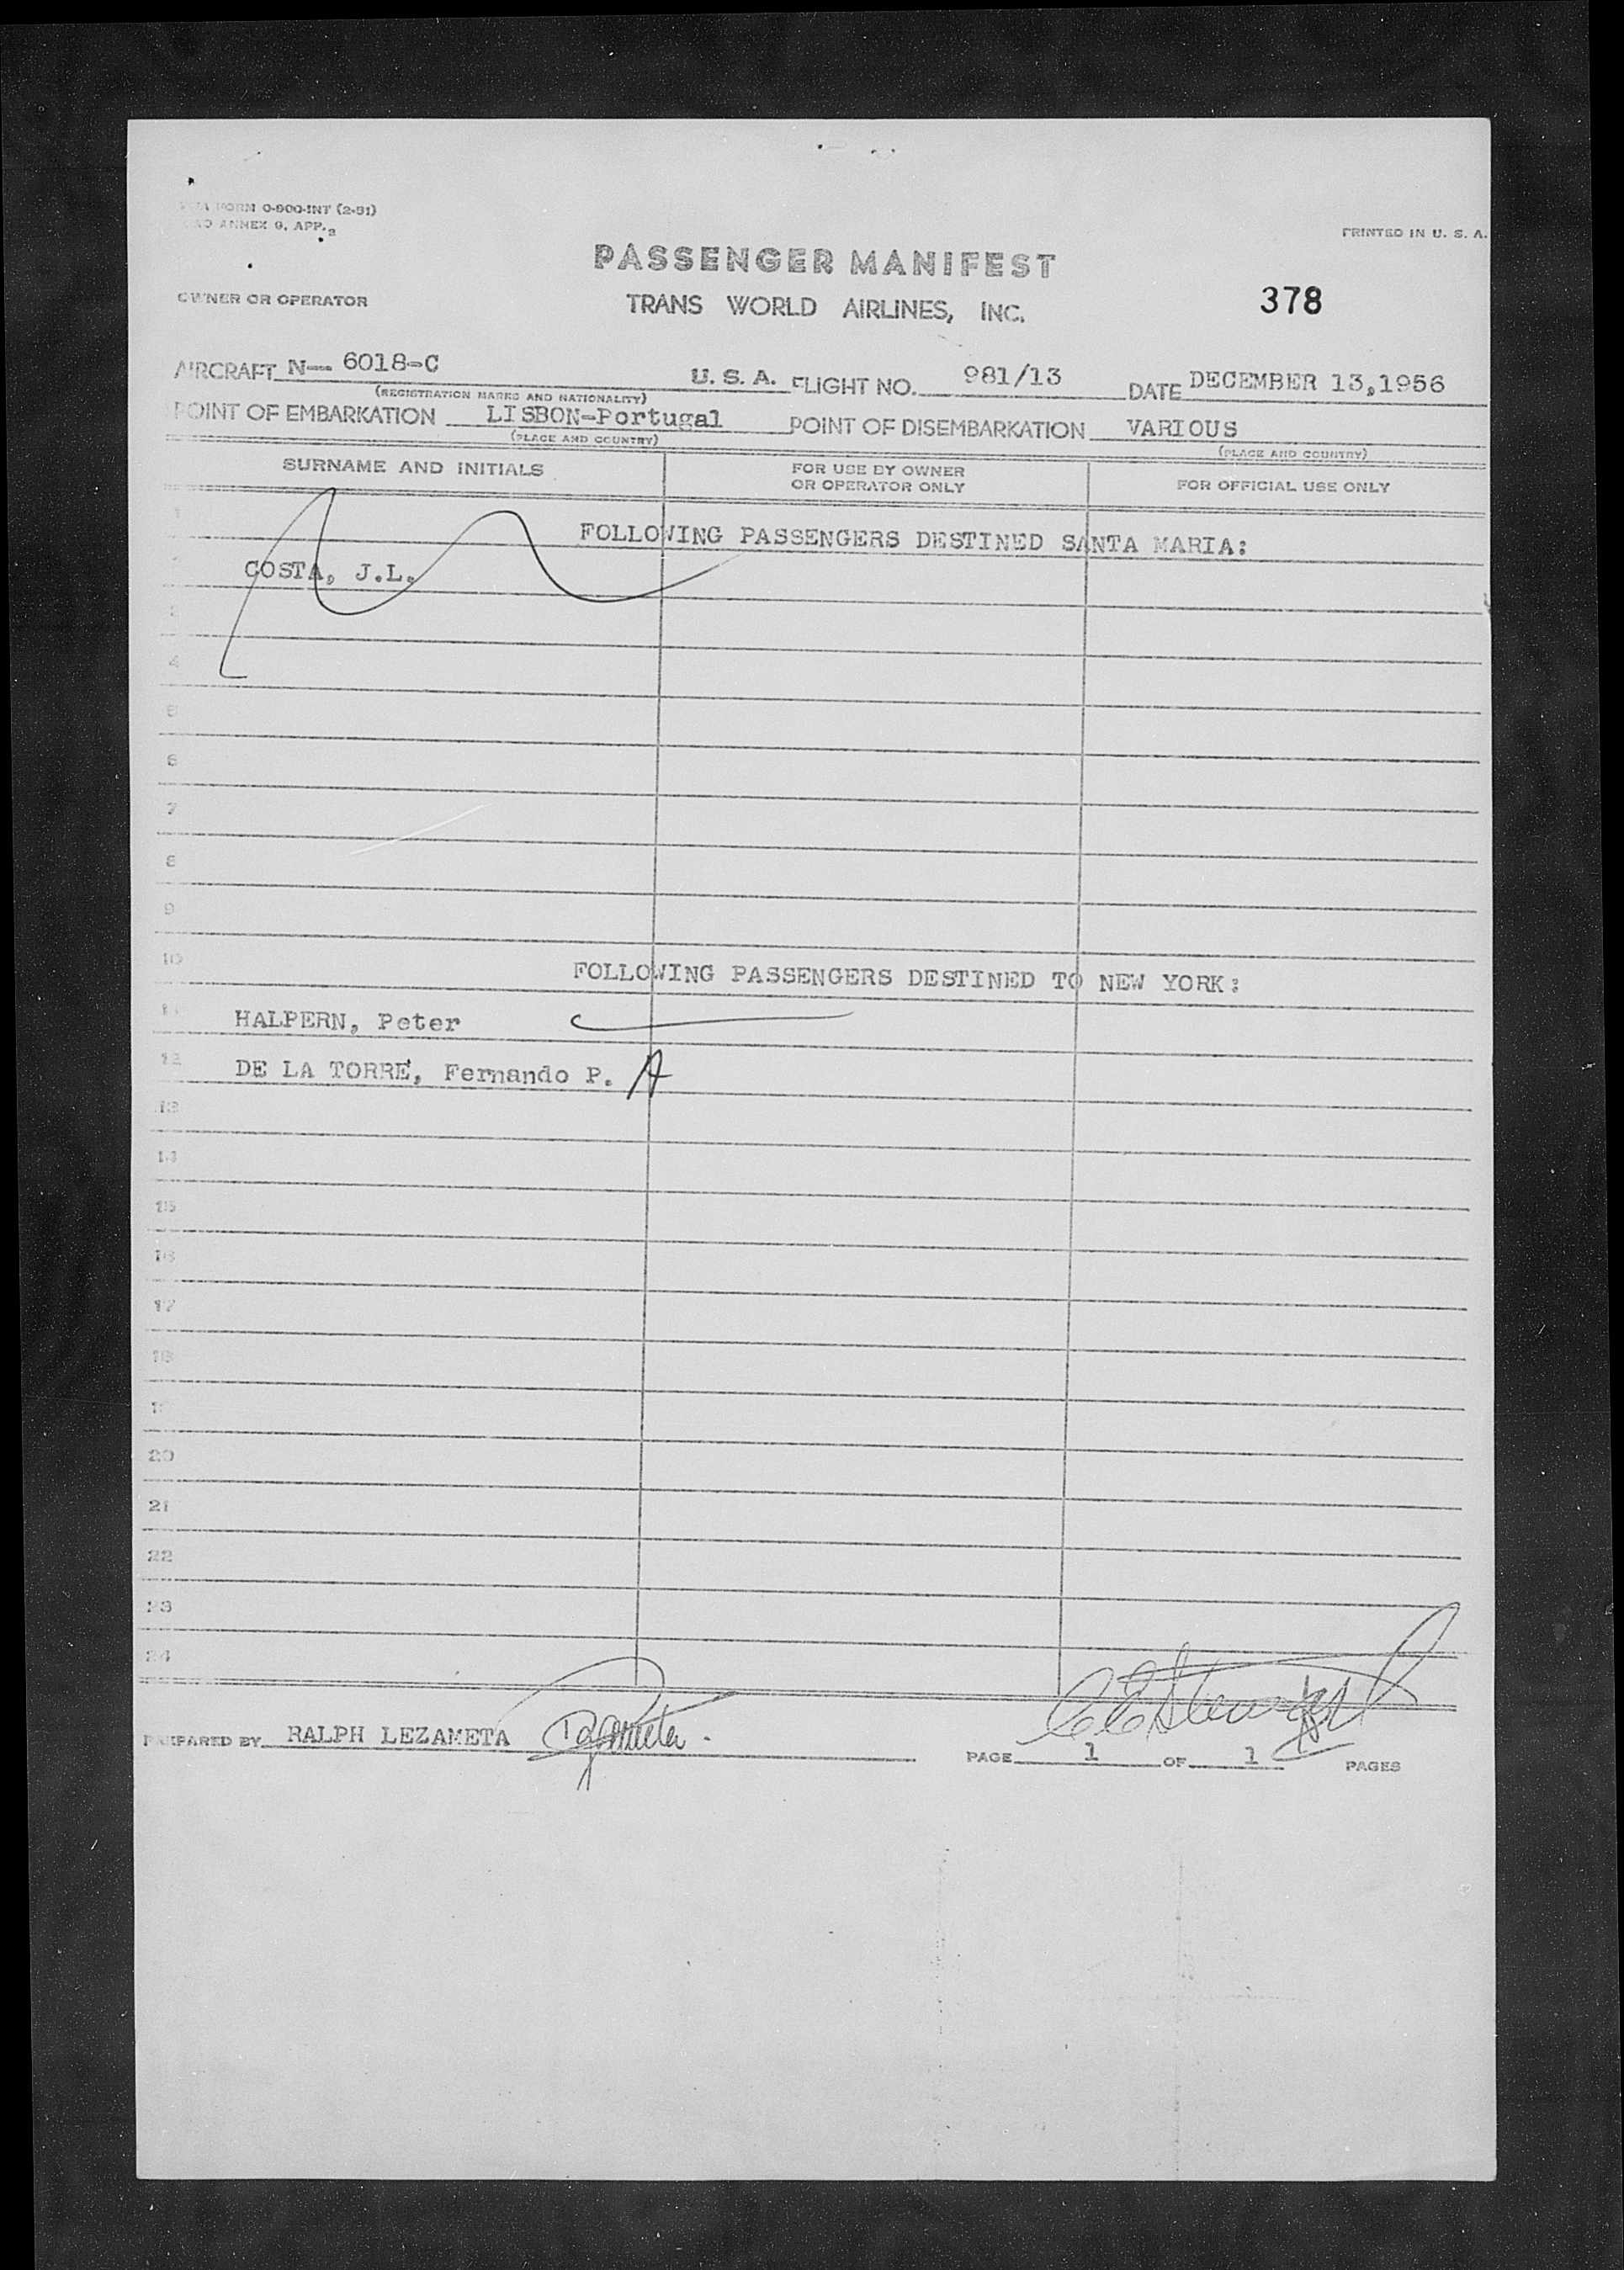 FORM O-900-INT (2-51)
ANNEX 9, APP. 2
PRINTED IN U. S. A.
PASSENGER MANIFEST
OWNER OR OPERATOR TRANS WORLD AIRLINES, INC. 378
AIRCRAFT N- 6018-C U. S. A. FLIGHT NO. 981/13 DATE DECEMBER 13,1956
(REGISTRATION MARKS AND NATIONALITY)
POINT OF EMBARKATION LISBON-Portugal POINT OF DISEMBARKATION VARIOUS
(PLACE AND COUNTRY) (PLACE AND COUNTRY)
SURNAME AND INITIALS FOR USE BY OWNER OR OPERATOR ONLY FOR OFFICIAL USE ONLY
1 FOLLOWING PASSENGERS DESTINED SANTA MARIA:
COSTA, J.L.
4
5
6
7
8
9
10 FOLLOWING PASSENGERS DESTINED TO NEW YORK:
11 HALPERN, Peter
12 DE LA TORRE, Fernando P. A
13
14
15
16
17
18
19
20
21
22
23
24
PREPARED BY RALPH LEZAMETA
PAGE 1 OF 1 PAGES